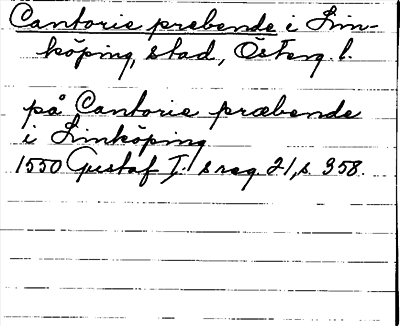 Cantorie prebende i Lin-
köping, stad, Österg. l.
på Cantorie præbende
i Linköping
1550 Gustaf I:s reg. 21, s. 358.